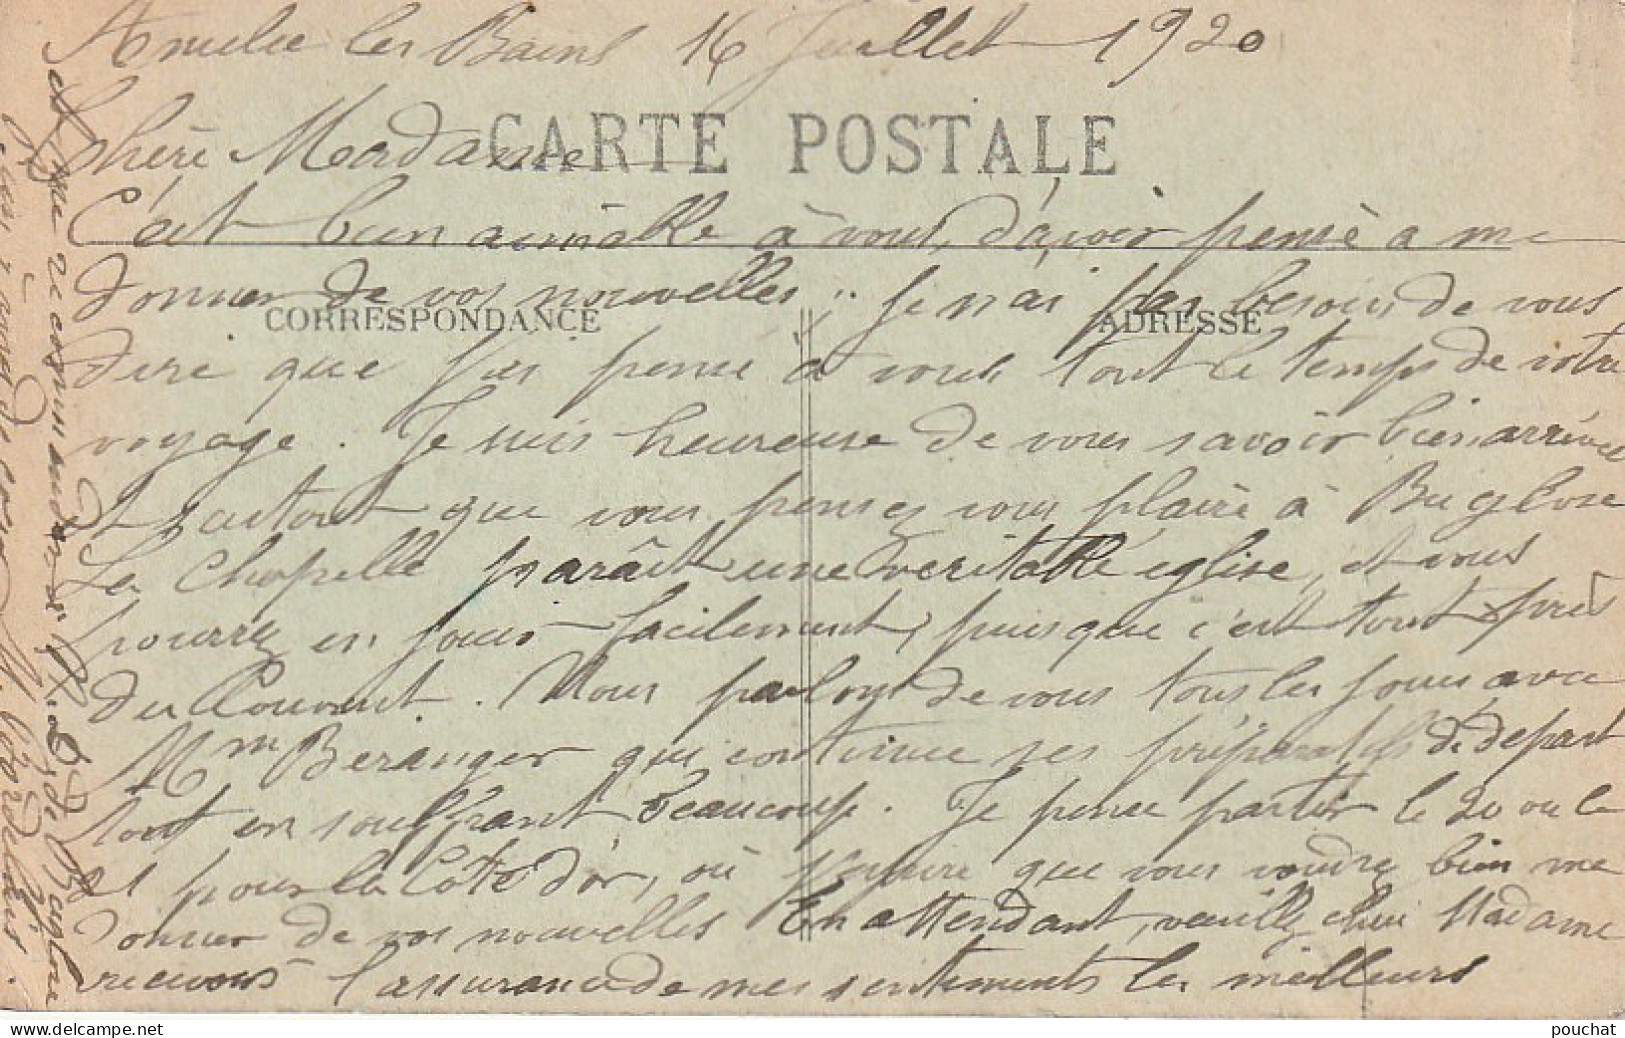 Amelie les Bains 16 Juillet 1920
CARTE POSTALE
Chère Madame
C'est bien aimable à vous d'avoir pensé a me
donner de vos nouvelles. Je n'ai pas besoin de vous
CORRESPONDANCE
ADRESSE
dire que j'ai pensé à vous tout le temps de votre
voyage. Je suis heureuse de vous savoir bien arrivée
et surtout que vous pensez vous plaire à Buglose
La Chapelle parâit une véritable église, et vous
pourrez en jouir facilement, puisque c'est tout près
du Couvent. Nous parlons de vous tous les jours avec
Mme Beranger qui continue ses préparatifs de départ
tout en souffrant beaucoup. Je pense partir le 20 ou le
21 pour la Côte d'or, où j'espère que vous voudrez bien me
donner de vos nouvelles En attendant, veuillez chère Madame
recevoir l'assurance de mes sentiments les meilleurs
et me recommander à N. D. de Buglose
pouchat